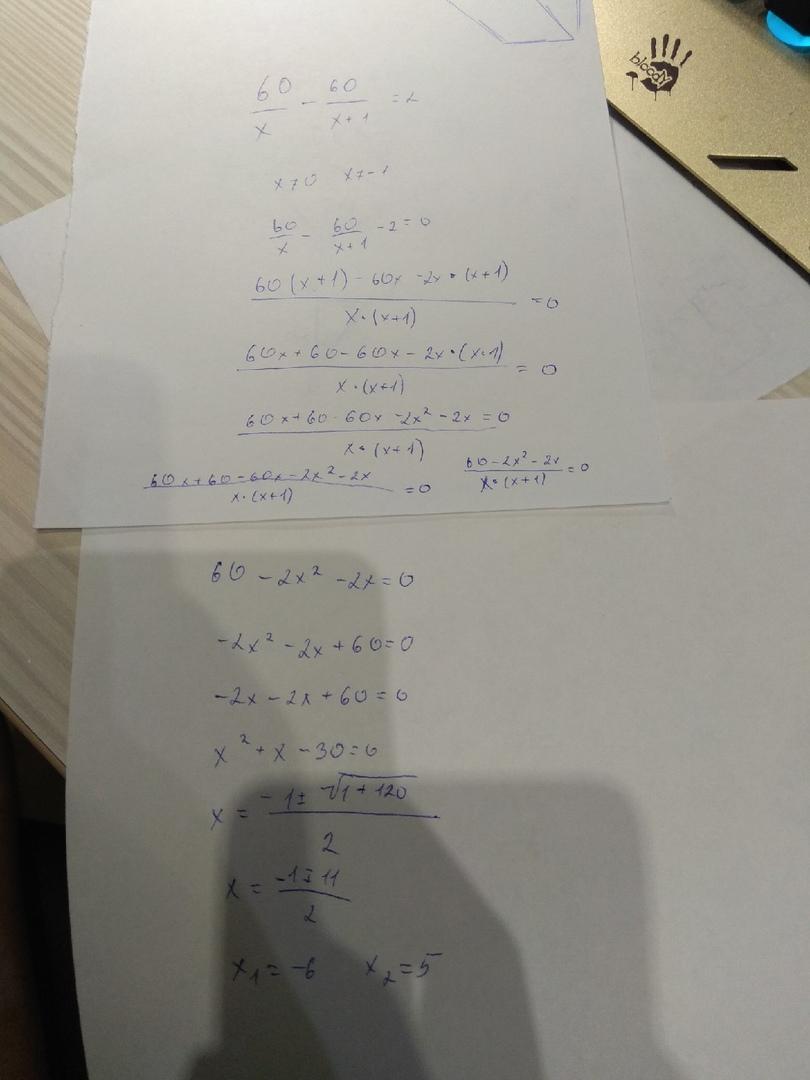 bloody
60/x - 60/(x+1) = 2
x≠0 x≠-1
60/x - 60/(x+1) - 2 = 0
(60(x+1) - 60x - 2x·(x+1))/(x·(x+1)) = 0
(60x + 60 - 60x - 2x·(x·1))/(x·(x+1)) = 0
(60x + 60 - 60x - 2x² - 2x = 0)/(x·(x+1))
(60x + 60 - 60x - 2x² - 2x)/(x·(x+1)) = 0 (60 - 2x² - 2x)/(x·(x+1)) = 0
60 - 2x² - 2x = 0
-2x² - 2x + 60 = 0
-2x - 2x + 60 = 0
x² + x - 30 = 0
x = (-1 ± √(1 + 120))/2
x = (-1 ± 11)/2
x₁ = -6 x₂ = 5